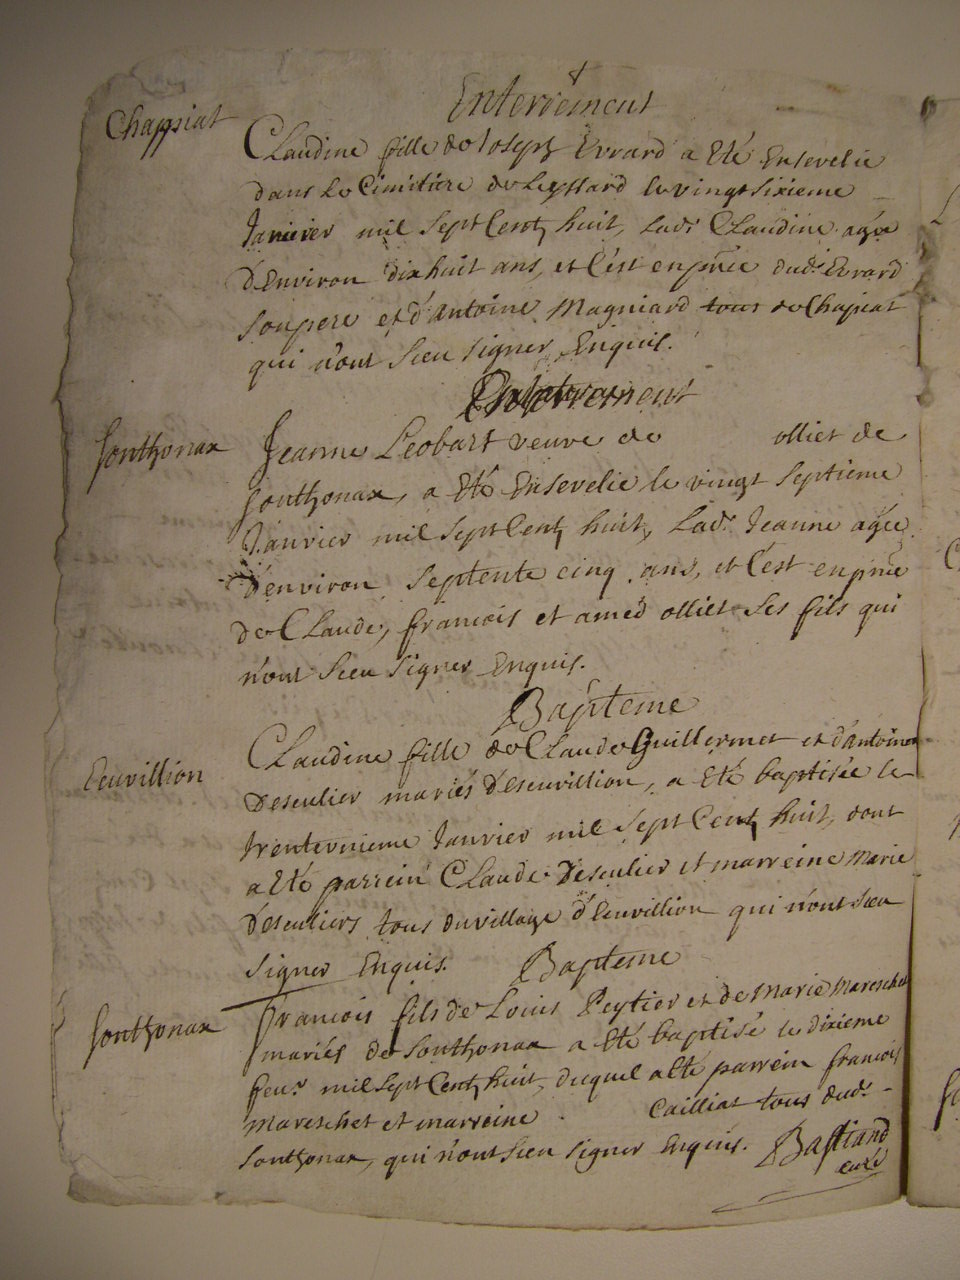 Enterrement
Chappiat
Claudine fille de Joseph Evrard a Eté Ensevelie
dans Le Cimitiere de Leyssard le vingt Sixieme
Janvier mil Sept Cent huit, Lade Claudine agée
d'Environ dix huit ans, et C'est en pnce dudt Evrard
Son pere et d'Antoine Magniard tous de Chapiat
qui n'ont Sceu Signer Enquis.
Enterrement
Sonthonax
Jeanne Leobart veuve de olliet de
Sonthonax, a Eté Ensevelie le vingt Septieme
Janvier mil Sept Cent huit, Lade Jeanne agée
d'environ Septente cinq ans, et C'est en pnce
de Claude, francois et amed olliet Ses fils qui
n'ont Sceu Signer Enquis.
Bapteme
Eeuvillion
Claudine fille de Claude Guillermet et d'antoine
Deseulier mariés d'Eseuvillion, a Eté baptisée le
trenteunieme Janvier mil Sept Cent huit, dont
a Eté parrein Claude Deseulier et marreine Marie
Deseuliers tous du village d'Eeuvillion qui n'ont Sceu
Signer Enquis.
Bapteme
Sonthonax
francois fils de Louis Peytier et de Marie Mareschet
mariés de Sonthonax a Eté baptisé le dixieme
feur mil Sept Cent huit, duquel a Eté parrein francois
Mareschet et marreine Cailliat tous dudt
Sonthonax, qui n'ont Sceu Signer Enquis. Bastiand
curé